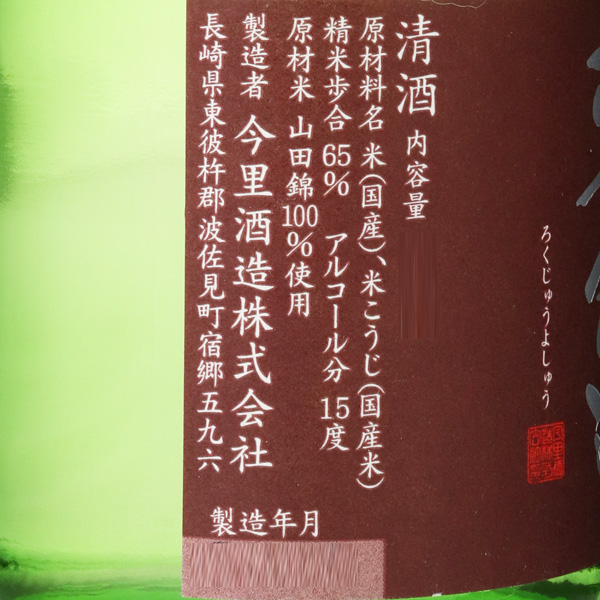 ろくじゅうよしゅう
清酒 内容量
原材料名 米(国産)、米こうじ(国産米)
精米歩合 65% アルコール分 15度
原材米 山田錦100%使用
製造者 今里酒造株式会社
長崎県東彼杵郡波佐見町宿郷五九六
製造年月